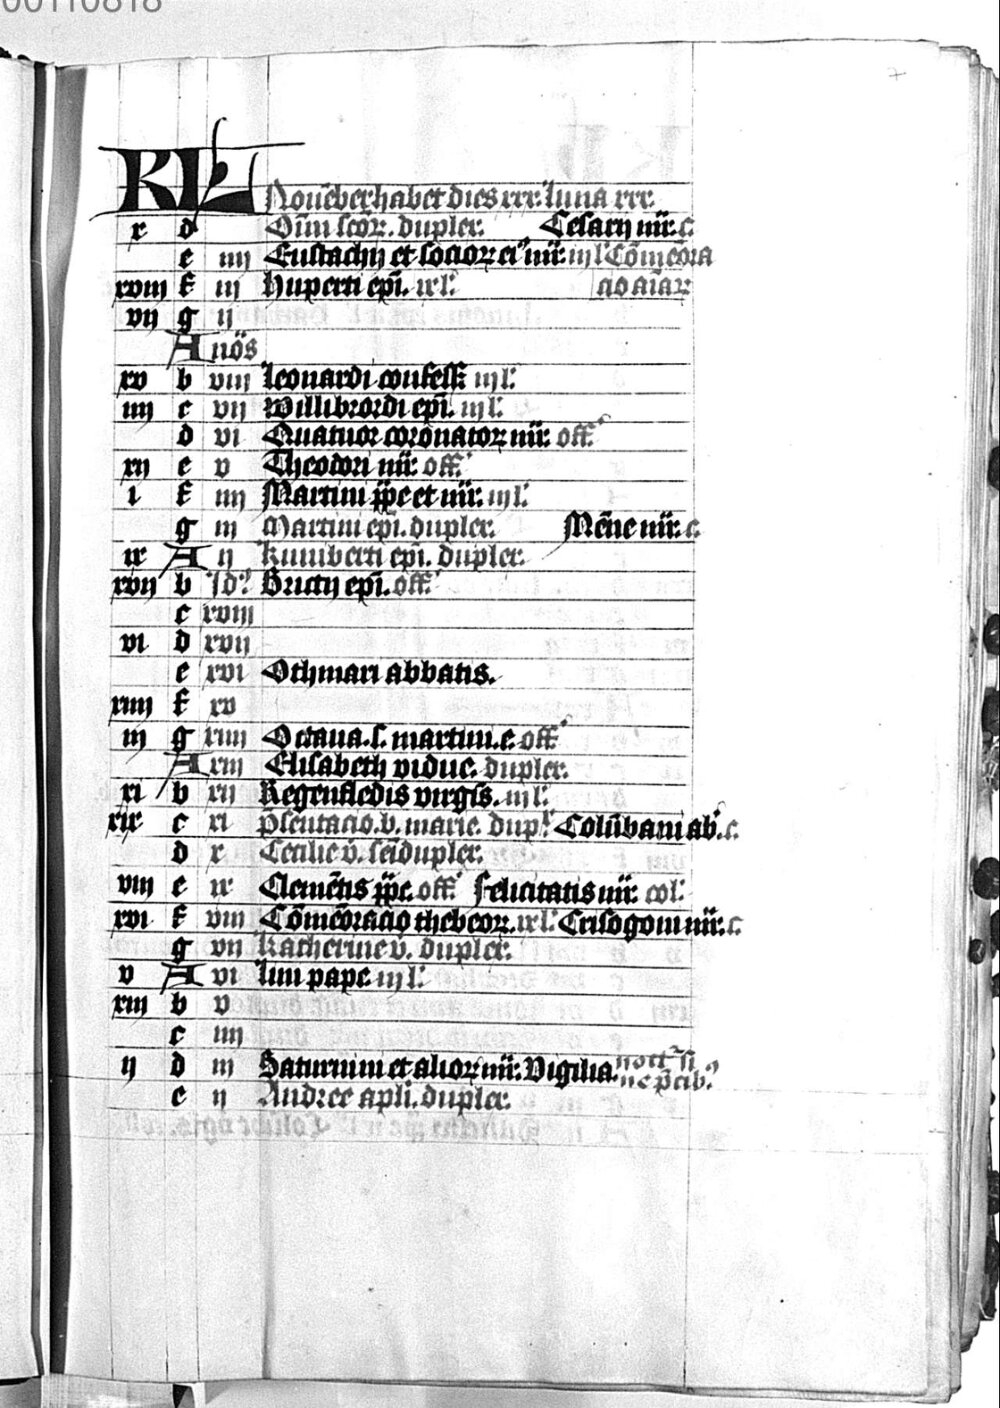 00110818
KL Nouẽber habet dies xxx. luna xxx.
x d Om̃i scõr. dupler. Cesarij mr̃. c.
e iiij Eustachij et socior ei' mr̃. iij l' Cõmẽora
xviij f iij Huperti epĩ. ix l'. aĩar
vij g ij
A nõs
xv b viij Leonardi confess. iij l'.
iiij c vij Willibrordi epĩ. iij l'.
d vi Quatuor coronator mr̃. off'
xij e v Theodori mr̃. off'
i f iiij Martini pp̃e et mr̃. iij l'.
g iij Martini epĩ. dupler. Mẽne mr̃. c.
ix A ij Kuniberti epĩ. dupler.
xvij b Id' Bricij epĩ. off'
c xviij
vi d xvij
e xvi Othmari abbatis.
xiiij f xv
iij g xiiij Octaua. s. martini. e. off'
A xiij Elisabeth vidue. dupler.
xi b xij Regenfledis virgĩs. iij l'.
xix c xi p̃sentacio. b. marie. dup' Colũbani ab'. c.
d x Cecilie v̄. sẽidupler.
viij e ix Clemẽtis pp̃e. off' Felicitatis mr̃. col'
xvi f viij Cõmẽoracio thebeor. ix l'. Crisogoni mr̃. c
g vij Katherine v̄. dupler.
v A vi Lini pape iij l'.
xiij b v
c iiij
ij d iij Saturnini et alior mr̃. Vigilia.
e ij Andree apli. dupler.